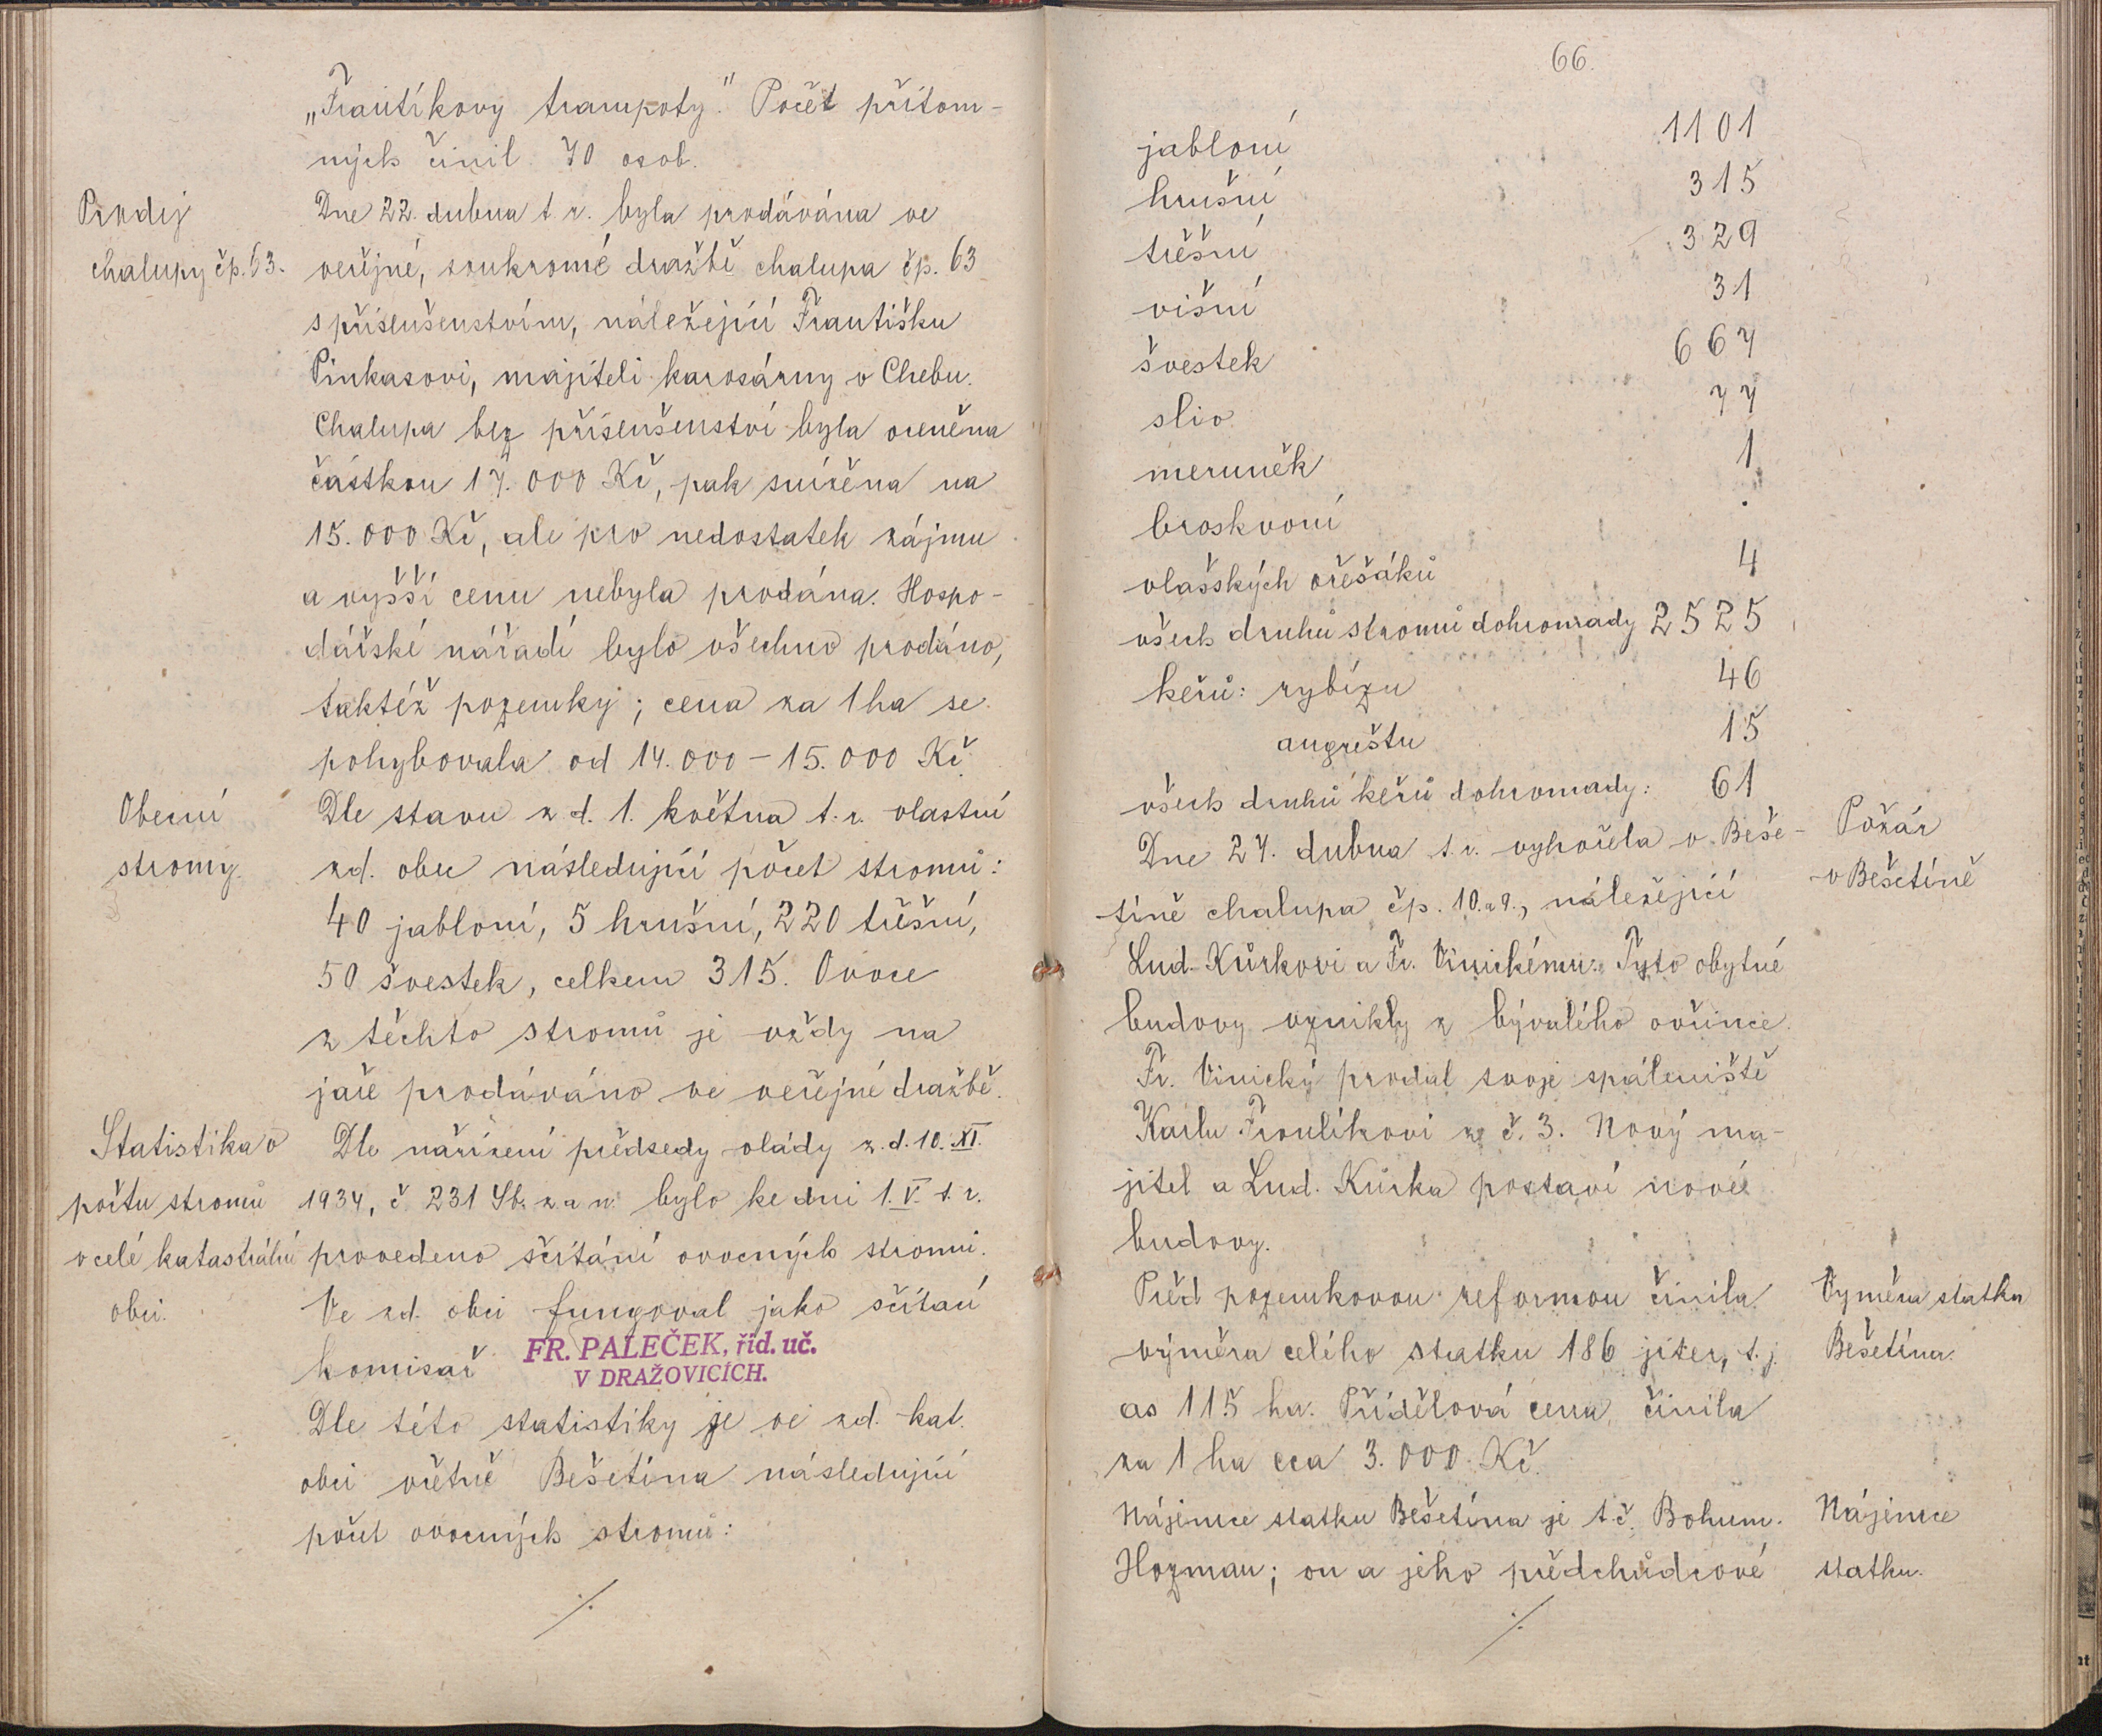 „Frantíkovy trampoty." Počet přítom-
ných činil 70 osob.
Prodej
chalupy čp. 63.
Dne 22. dubna t. r. byla prodávána ve
veřejné, soukromé dražbě chalupa čp. 63
s příslušenstvím, náležející Františku
Pinkasovi, majiteli karosárny v Chebu.
Chalupa bez příslušenství byla oceněna
částkou 17.000 Kč, pak snížena na
15.000 Kč, ale pro nedostatek zájmu
a vyšší cenu nebyla prodána. Hospo-
dářské nářadí bylo všechno prodáno,
taktéž pozemky; cena za 1 ha se
pohybovala od 14.000 – 15.000 Kč.
Obecní
stromy.
Dle stavu z d. 1. května t. r. vlastní
zd. obec následující počet stromů:
40 jabloní, 5 hrušní, 220 třešní,
50 švestek, celkem 315. Ovoce
z těchto stromů je vždy na
jaře prodáváno ve veřejné dražbě.
Statistika o
počtu stromů
v celé katastrální
obci.
Dle nařízení předsedy vlády z. d. 10. XI.
1934, č. 231 Sb. z. a n. bylo ke dni 1. V. t. r.
provedeno sčítání ovocných stromů.
Ve zd. obci fungoval jako sčítací
komisař FR. PALEČEK, říd. uč.
V DRAŽOVICÍCH.
Dle této statistiky je ve zd. kat.
obci včetně Bešetína následující
počet ovocných stromů:
./.
66.
jabloní 1101
hrušní 315
třešní 329
višní 31
švestek 667
sliv 77
meruněk 1
broskvoní .
vlašských ořešáků 4
všech druhů stromů dohromady 2525
keřů: rybízu 46
angreštu 15
všech druhů keřů dohromady: 61
Požár
v Bešetíně
Dne 27. dubna t. r. vyhořela v Beše-
tíně chalupa čp. 10. a 9., náležející
Lud. Kůrkovi a Fr. Vinickému. Tyto obytné
budovy vznikly z bývalého ovčince.
Fr. Vinický prodal svoje spáleniště
Karlu Froulíkovi z č. 3. Nový ma-
jitel a Lud. Kůrka postaví nové
budovy.
Výměra statku
Bešetína.
Před pozemkovou reformou činila
výměra celého statku 186 jiter, t. j.
as 115 ha. Přídělová cena činila
za 1 ha cca 3.000 Kč.
Nájemce
statku.
Nájemce statku Bešetína je t. č. Bohum.
Hozman; on a jeho předchůdcové
./.